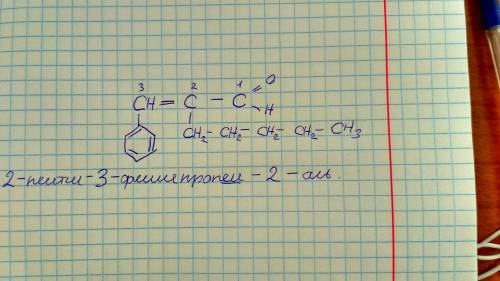 3 2 1 O
CH = C - C H
CH₂ - CH₂ - CH₂ - CH₂ - CH₃
2-пентил-3-фенилпропен-2-аль.